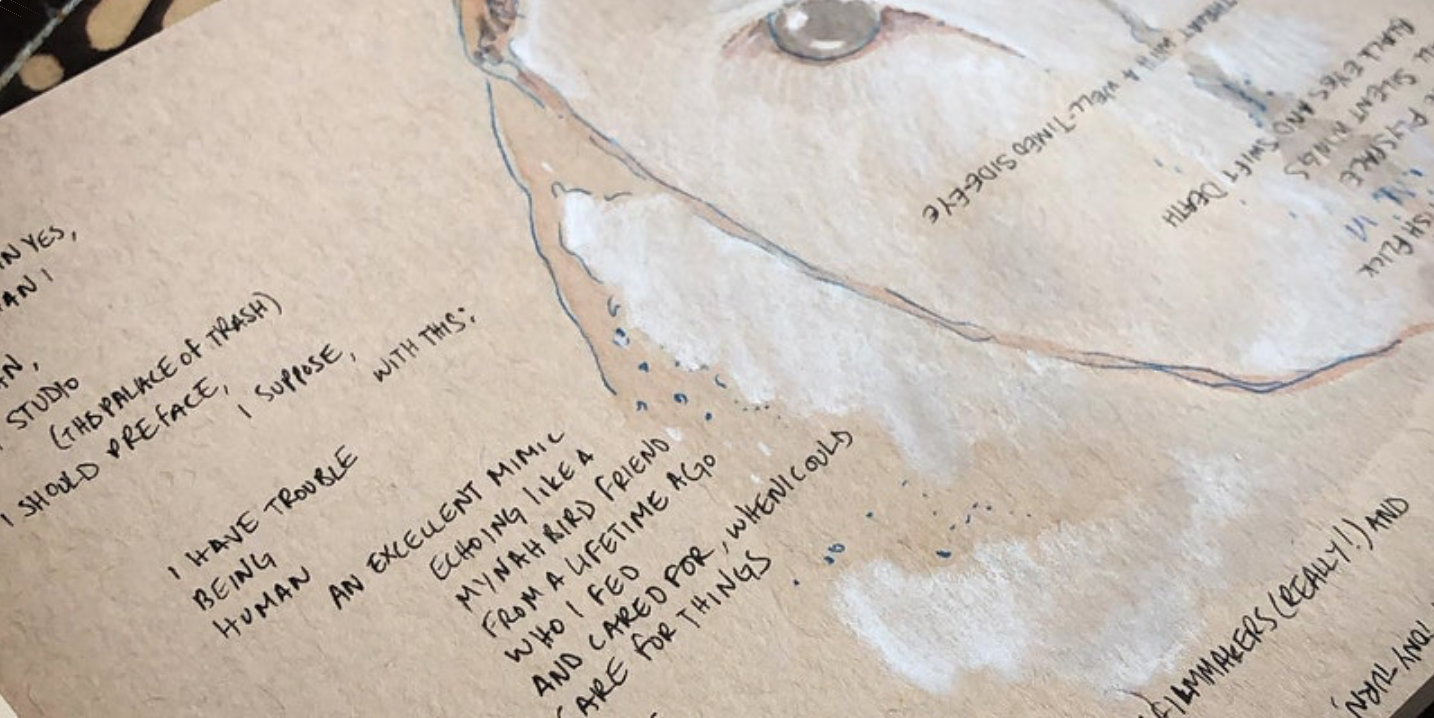 IN YES,
STUDIO
(THE PALACE OF TRASH)
I SHOULD PREFACE,
I SUPPOSE,
WITH THIS:
I HAVE TROUBLE
BEING
HUMAN
AN EXCELLENT MIMIC
ECHOING LIKE A
MYNAH BIRD FRIEND
FROM A LIFETIME AGO
WHO I FED
AND CARED FOR, WHEN I COULD
CARE FOR THINGS
FILMMAKERS (REALLY!) AND
WITH A WELL-TIMED SIDE-EYE
EYES AND SWIFT DEATH
SILENT WINGS
FLICK